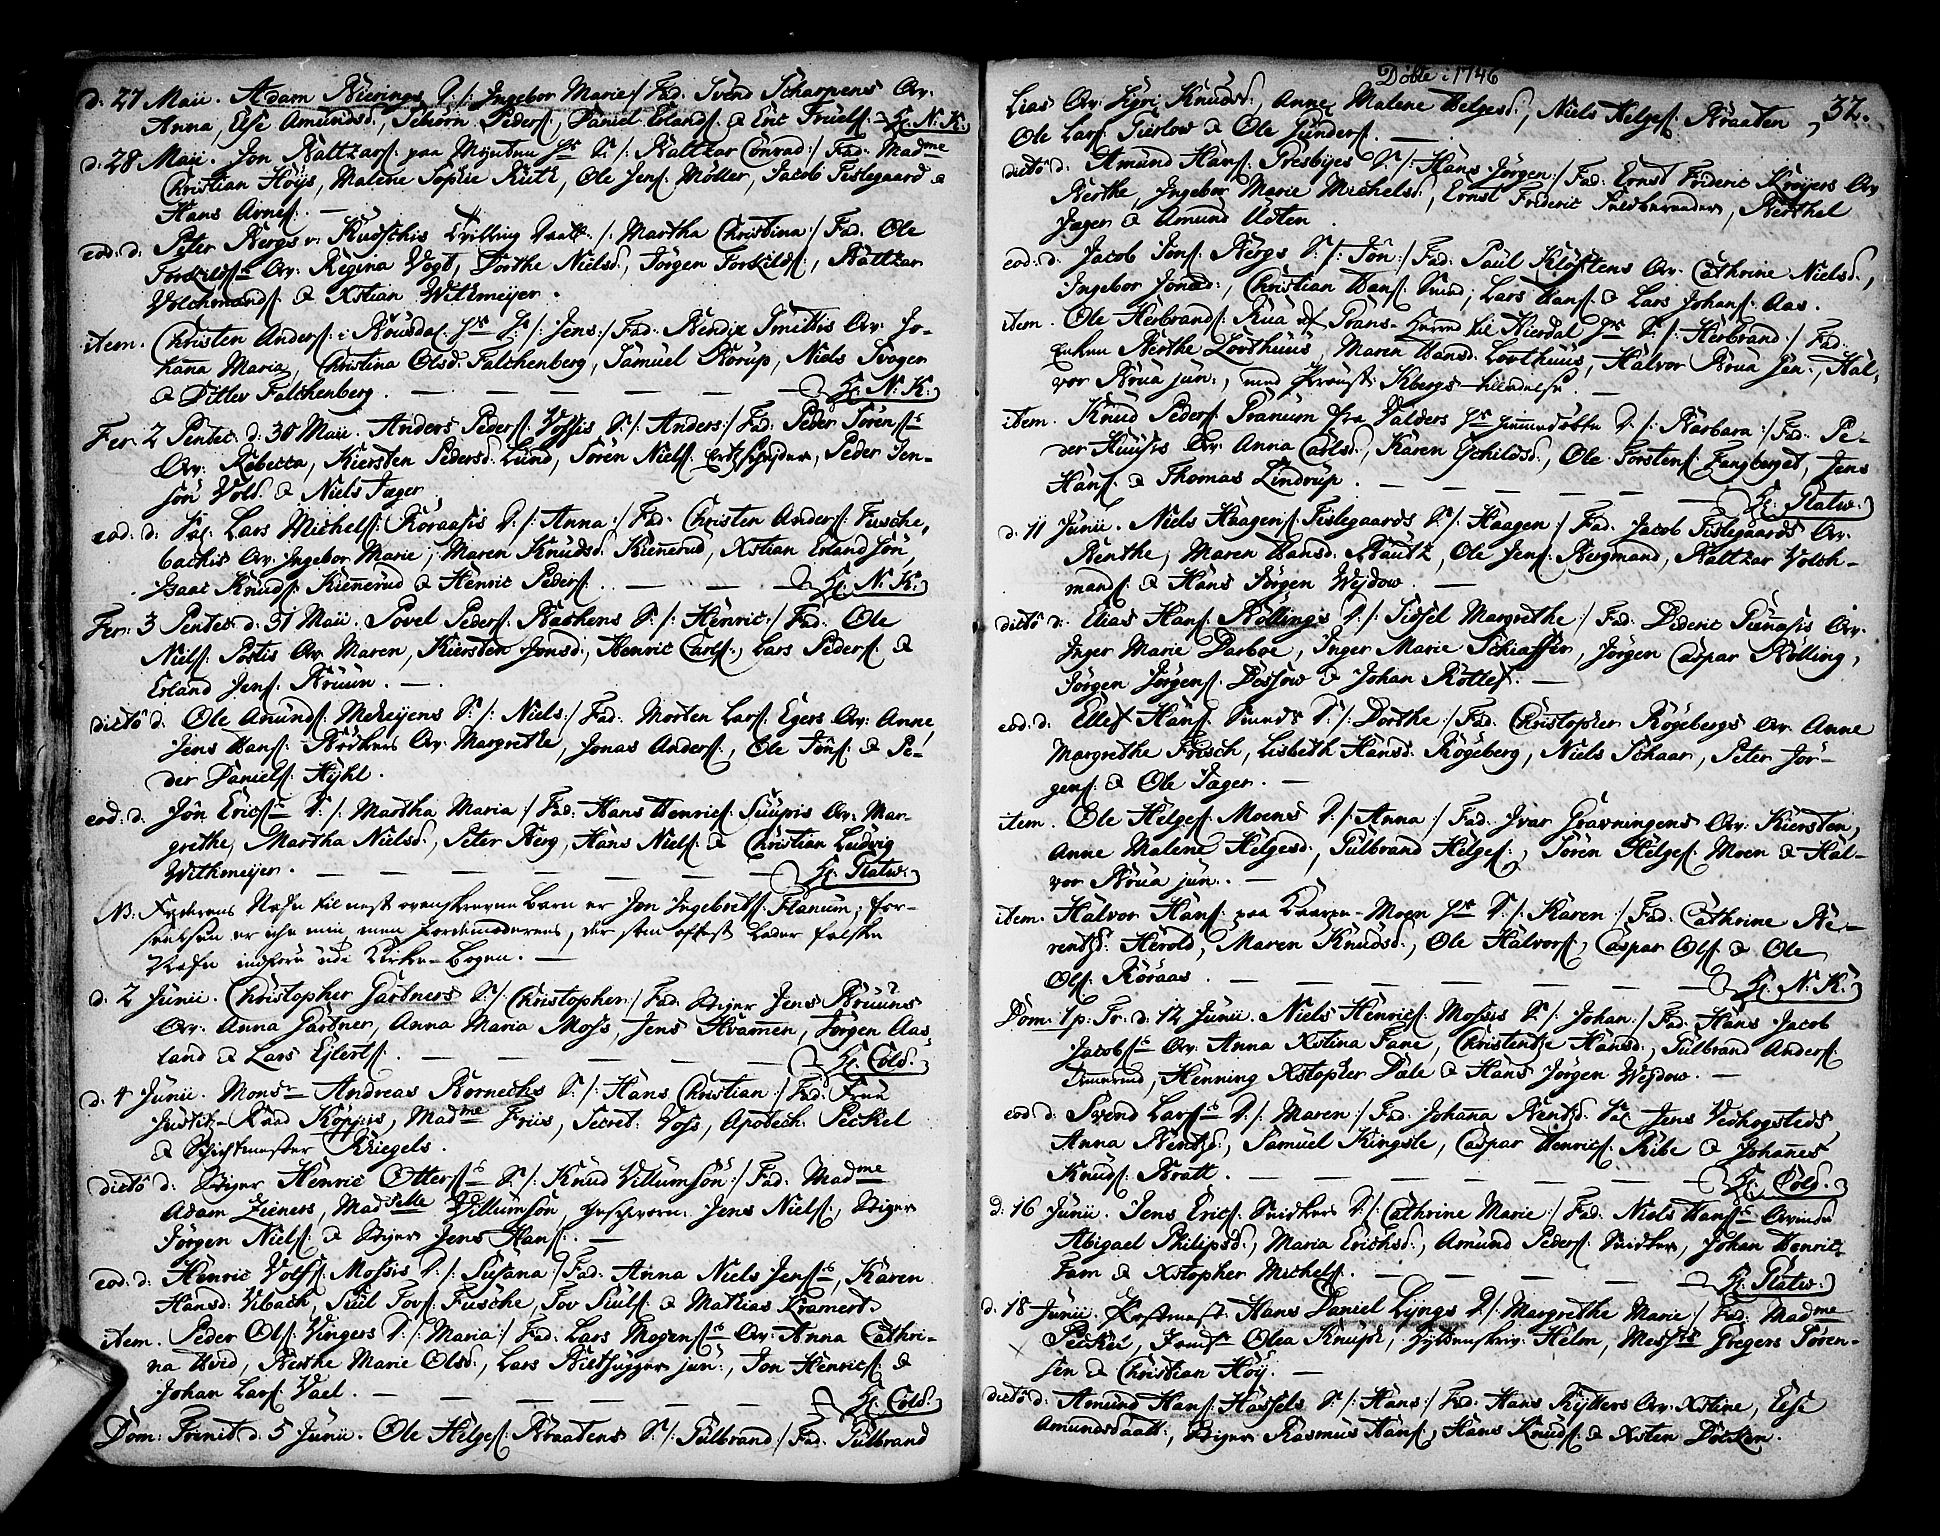 d. 27 Maii. Adam Büerings D. /: Ingebor Marie/ Fad. Svend Scharpens Qv.
Anna, Else Amundsd., Seborn Peders., Daniel Erlands. & Eric Truels. H. N. K.
d. 28 Maii. Jon Baltzars. paa Mynten S. /: Baltzar Conrad:/ Fad. Madme
Christian Höijs, Malene Sophie Rütz, Ole Jens. Möller, Jacob Fislegaard &
Hans Arnes. —
eod. d. Peter Bergs v. Kudschis Tvilling Daatt. /: Martha Christina:/ Fad. Ole
Torkilds. Qv. Regina Vogt, Dorthe Nielsd., Jörgen Torkilds., Baltzar
Volchmands. & Xstian Withmeijer.
item. Christen Anders. i Kousdal S. /: Jens:/ Fad. Bendix Smittis Qv. Jo-
hanna Maria, Christina Olsd. Falchenberg, Samuel Borup, Niels Svager
& Ditlev Falchenberg. — H. N. K.
Fer. 2 Pentec. d. 30 Maii. Anders Peders. Vossis S. /: Anders:/ Fad. Peder Sörens.
Qv. Rebecca, Kiersten Pedersd. Lund, Sören Niels. Ertzscheider, Peder Jen-
sön Vold. & Niels Jæger.
eod. d. Sal. Lars Michels. Röraasis D. /: Anna:/ Fad. Christen Anders. Fusche,
bachis Qv. Ingebor Marie, Maren Knudsd. Kiennerud, Xstian Erlandsön,
Isaac Knuds. Kiennerud & Henric Peders. — H. N. K.
Fer. 3 Pentec. d. 31 Maii. Povel Peders. Bachens S. /: Henric:/ Fad. Ole
Niels. Postis Qv. Maren, Kiersten Jonsd., Henric Carls., Lars Peders. &
Erland Jens. Bruun. —
dicto d. Ole Amunds. Mexeijens S. /: Niels:/ Fad. Morten Lars. Egers Qv. Anne,
Jens Hans. Bödkers Qv. Margrethe, Jonas Anders., Ole Jons. & Pe-
der Daniels. Hÿhl.
eod. d. Jon Erics. D. /: Martha Maria:/ Fad. Hans Henrics. Suuris Qv. Mar-
grethe, Martha Nielsd., Peter Berg, Hans Niels. & Christian Ludvig
Withmeijer. — H. Statw.
NB. Faderens Nafn til næst ovenskrevne Barn er Jon Ingebrits. Flanum, for-
seelsen er icke min men Jordemoderens, der som oftest lader falske
Nafn indføre udi Kirke-Bogen. —
d. 2 Junii. Christopher Gartners S. /: Christopher:/ Fad. Stiger Jens Bruuns
Qv. Anna Gartner, Anna Maria Moss, Jens Kramer, Jörgen Aas,
land & Lars Ejlerts. — H. Cold.
d. 4 Junii. Monsr. Andreas Bornechs S. /: Hans Christian:/ Fad. Frue
Justitz-Raad Köppis, Madme Friis, Secret. Voss, Apothech. Peckel
& Schichtmester Kriegels.
dicto d. Stiger Henric Otters. S. /: Knud Villumsön:/ Fad. Madme
Adam Zieners, Madselle Villumsön, Geschworn. Jens Niels., Stiger
Jörgen Niels. & Stiger Jens Hans. —
eod. d. Henric Volfs. Mossis D. /: Susana:/ Fad. Anna Niels Jens., Karen
Hansd. Vibach, Siul Tovs. Fusche, Tov Siuls. & Mathias Kramert.
item. Peder Ols. Vingers D. /: Maria:/ Fad. Lars Mogens. Qv. Anna Cathri-
na Hvid, Berthe Marie Olsd., Lars Kiethugger jun., Jon Henrics. &
Johan Lars. Vael. — H. Cold.
Dom. Trinit. d. 5 Junii. Ole Helges. Braatens S. /: Gulbrand:/ Fad. Gulbrand
Döbte i 1746
37.
Lias Qv. Sigri Knudsd., Anne Malene Helgesd., Niels Helges. Braaten
Ole Lars. Türlow & Ole Gunders. —
dicto d. Amund Hans. Presbijes S. /: Hans Jörgen:/ Fad. Ernst Frideric Kröijers Qv.
Berthe, Ingebor Marie Michelsd., Ernst Frideric Puldherader, Berthel
Jæger & Amund Üdten.
eod. d. Jacob Jons. Bergs S. /: Jon:/ Fad. Paul Klöftens Qv. Cathrine Nielsd.,
Ingebor Jonæd., Christian Hans. Smed, Lars Hans. & Lars Johans. Aas.
item. Ole Herbrands. Rua af Trans-Herred til Hierdal S. /: Herbrand:/ Fad.
Enken Berthe Lovthuus, Maren Hansd. Lovthuus, Halvor Brua Sen., Hal-
vor Brua jun., med Provst. Kbergs tilladelse. —
item. Knud Peders. Tranum fra Valders D. /: Barbara:/ Fad. Pe-
der Huusis Qv. Anna Carlsd., Karen Eschildsd., Ole Torstens. Fangberget, Jens
Hans. & Thomas Lindrup. — H. Statw.
d. 11 Junii. Niels Haagens. Fislegaards S. /: Haagen:/ Fad. Jacob Fislegaards Qv.
Benthe, Maren Hansd. Bautz, Ole Jens. Bergmand, Baltzar Volch-
mands. & Hans Jörgen Weijdow. —
dicto d. Elias Hans. Böllings D. /: Sidsel Margrethe:/ Fad. Dideric Pennasis Qv.
Inger Marie Darboe, Inger Marie Schiaffer, Jörgen Caspar Bölling,
Jörgen Jörgens. Dossow & Johan Röttes. —
eod. d. Ellef Hans. Smeds D. /: Dorthe:/ Fad. Christopher Rögebergs Qv. Anne
Margrethe Frisch, Lisbeth Hansd. Rögeberg, Niels Schaar, Peter Jör-
gens. & Ole Jæger. —
item. Ole Helges. Moens D. /: Anna:/ Fad. Ivar Gravningens Qv. Kiersten,
Anne Malene Helgesd., Gulbrand Helges., Sören Helges. Moen & Hal-
vor Brua jun. —
item. Halvor Hans. paa Kaaren-Moen D. /: Karen:/ Fad. Cathrine Be-
rentsd. Herold, Maren Knudsd., Ole Halvors., Caspar Ols. & Ole
Ols. Röraas. — H. N. K.
Dom. 1 p. Tr. d. 12 Junii. Niels Henrics. Mossis S. /: Johan:/ Fad. Hans Jacob
Jacobs. Qv. Anna Xstina Fane, Christentze Hansd., Gulbrand Anders.
Temmerud, Henning Xstopher Dale & Hans Jörgen Weijdow. —
eod. d. Svend Lars. D. /: Maren:/ Fad. Johana Bentsd. Sal. Jens Vedhogsteds,
Anna Bentsd., Samuel Kingsle, Caspar Henrics. Ribe & Johanes
Knuds. Bratt. — H. Cold.
d. 16 Junii. Jens Erics. Snidkers D. /: Cathrine Marie:/ Fad. Niels Hans. Qvinde
Abigael Philipsd., Maria Erichsd., Amund Peders. Snidker, Johan Henric
Fam & Xstopher Michels. — H. Statw.
d. 18 Junii. Postmest. Hans Daniel Lÿngs D. /: Margrethe Marie:/ Fad. Madme
Peckel, Jomfr. Olea Knuds., Hyttenskriv. Helm, Messrs. Gregers Sören-
sen & Christian Höij. —
dicto d. Amund Hans. Hassels S. /: Hans:/ Fad. Hans Rÿtters Qv. Xstine, Else
Amundsdaatt., Stiger Rasmus Hans., Hans Knuds. & Xsten Dörken.